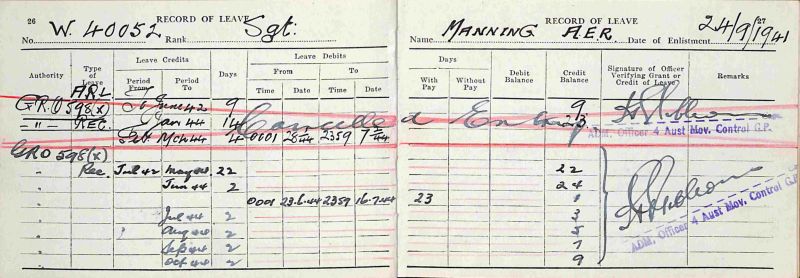 26 RECORD OF LEAVE
No. W. 40052 Rank Sgt.
RECORD OF LEAVE 27
Name MANNING A.E.R. Date of Enlistment 24/9/1941
Authority Type of Leave Leave Credits Period From Period To Days Leave Debits From Time Date To Time Date
Days With Pay Without Pay Debit Balance Credit Balance Signature of Officer Verifying Grant or Credit of Leave Remarks
A.R.L.
G.R.O 598(x) To June 42 9 9
-"- REC. Jan 44 14 23
Feb Mch 44 4 0001 28/44 2359 7/44
Cancelled Entry
ADM. Officer 4 Aust Mov. Control G.P.
GRO 598(x)
" Rec. Jul 42 May 44 22 22
" Jun 44 2 24
" 0001 23.6.44 2359 16.7.44 23 1
" Jul 44 2 3
" Aug 44 2 5
" Sep 44 2 7
" Oct 44 2 9
ADM. Officer 4 Aust Mov. Control G.P.